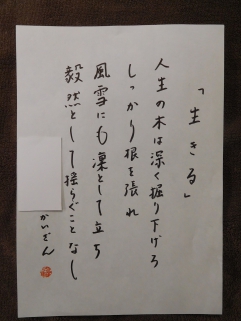 「生きる」
人生の木は深く掘り下げろ
しっかり根を張れ
風雪にも凜として立ち
毅然として揺らぐことなし
かいざん